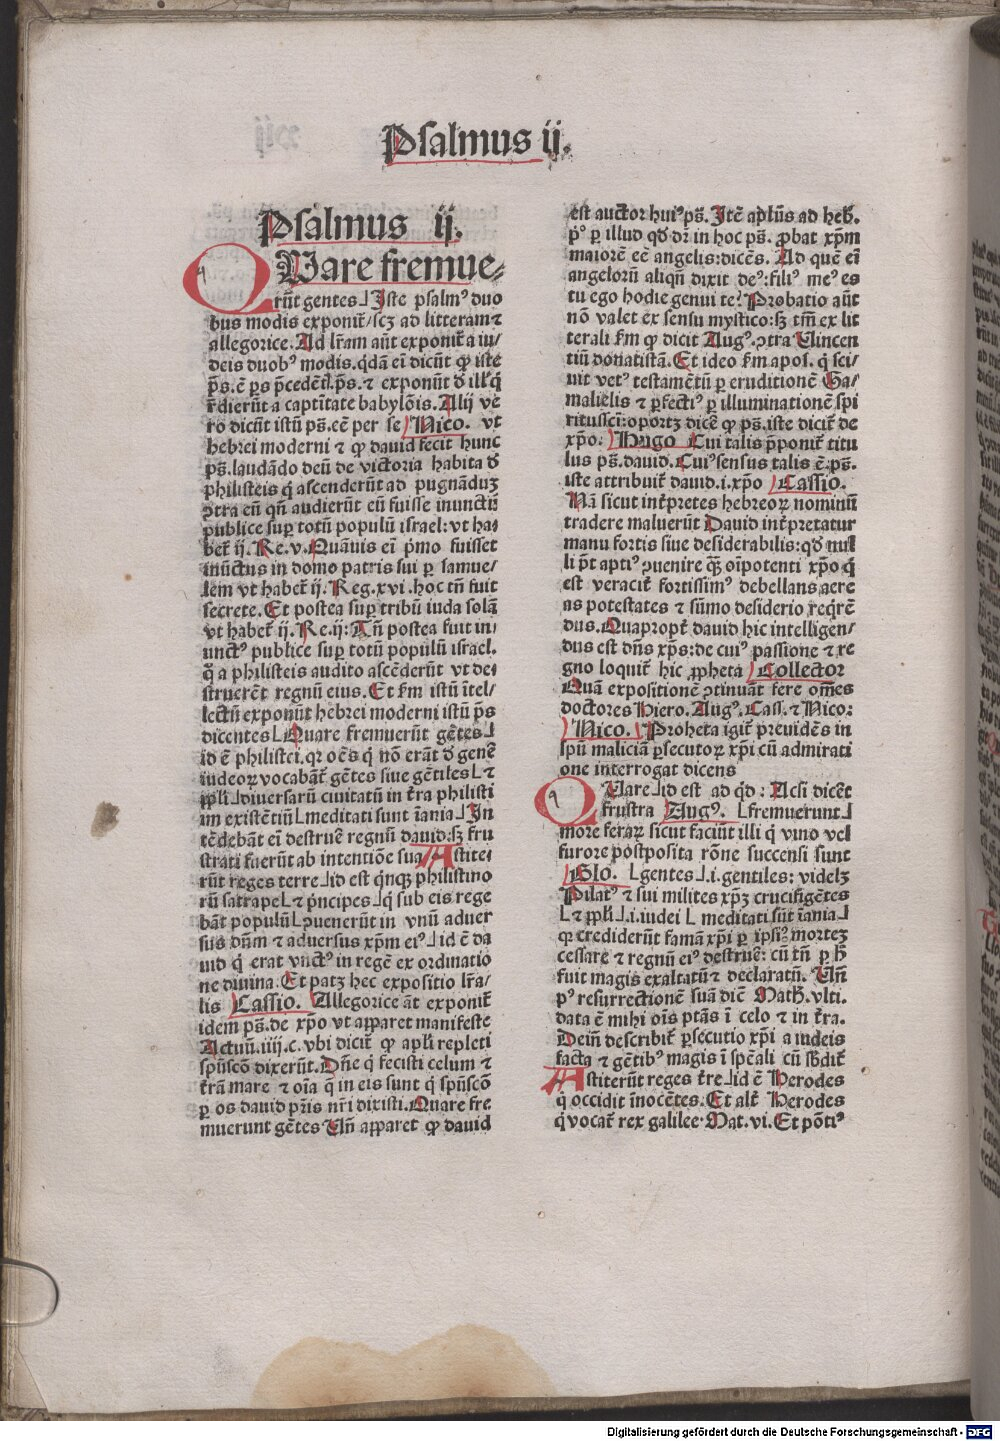 Psalmus ij.
Psalmus ij.
QUare fremue⸗
rūt gentes⅃ Iste psalmꝰ duo
bus modis exponit᷑/scꝫ ad litteram ⁊
allegorice. Ad lr̄am aūt exponit᷑ a iu/
deis duobꝰ modis. qdā ei dicūt ꝙ iste
ps̄. ē ps p̄cedēti.ps̄. ⁊ exponūt
r̄dierūt a captītate babylōis. Alij ve
ro dicūt istū ps̄. eē per se Nico. vt
hebrei moderni ⁊ ꝙ dauid fecit hunc
ps̄. laudādo deū de victoria habita d̄
philisteis q̇ ascenderūt ad pugnāduꝫ
ꝯtra eū qn̄ audierūt eū fuisse inunctū
publice suꝑ totū populū israel: vt ha⸗
bet᷑ ij. Re. v. Quāuis ei p̄mo fuisset
inūctus in domo patris sui ꝑ samue/
lem vt habet᷑ ij. Reg. xvi. hoc tn̄ fuit
secrete. Et postea suꝑ tribū iuda solā
vt habet᷑ ij. Re. ij: Tn̄ postea fuit in/
unctꝰ publice suꝑ totū populū israel.
q̄ a philisteis audito ascēderūt vt de⸗
struerēt regnū eius. Et ẜm istū ītel/
lectū exponūt hebrei moderni istū ps̄
dicentes ⅃Quare fremuerūt gētes⅃
id ē philistei. qꝛ oēs q̇ nō erāt d̄ genē
iudeoꝝ vocabāt᷑ gētes siue gētiles⅃ ⁊
ppl̄i⅃ diuersarū ciuitatū in t̄ra philisti
im existētiū L meditati sunt īania⅃ In
tēdebāt ei destruē regnū dauid: sꝫ fru
strati fuerūt ab intentiōe sua Astite⸗
rūt reges terre⅃ id est qnqꝫ philistino
rū satrape L ⁊ p̄ncipes⅃ q̇ sub eis rege
bāt populū L ꝯuenerūt in vnū aduer
sus dn̄m ⁊ aduersus xp̄m eiꝰ⅃ id ē da
uid q̇ erat vnctꝰ in regē ex ordinatio
ne diuina. Et patꝫ hec expositio lr̄a/
lis Cassio. Allegorice āt exponit᷑
idem ps̄. de xp̄o vt apparet manifeste
Actuū. iiij. c. vbi dicit᷑ ꝙ apl̄i repleti
spūscō dixerūt. Dn̄e q̇ fecisti celum ⁊
t̄rā mare ⁊ oīa q̄ in eis sunt q̇ spūscō
ꝑ os dauid pr̄is nr̄i dixisti. Quare fre
muerunt gētes Un̄ apparet ꝙ dauid
est auctor huiꝰ ps̄. Itē apl̄us ad heb̄.
pꝰ ꝑ illud qd̄ dr̄ in hoc ps̄. ꝓbat xp̄m
maiorē eē angelis: dicēs. Ad quē ei
angelorū aliqn̄ dixit deꝰ: filiꝰ meꝰ es
tu ego hodie genui te? Probatio aūt
nō valet ex sensu mystico: sꝫ tm̄ ex lit
terali ẜm ꝙ dicit Augꝰ. ꝯtra Uincen
tiū donatistā. Et ideo ẜm apos. q̇ sci/
uit vetꝰ testamētū ꝑ eruditionē Ga/
malielis ⁊ ꝑfectiꝰ ꝑ illuminationē spi
ritussci: oportꝫ dicē ꝙ ps̄. iste dicit᷑ de
xp̄o. Hugo Cui talis p̄ponit᷑ titu
lus ps̄. dauid. Cuiꝰ sensus talis ē. ps̄.
iste attribuit᷑ dauid. i. xp̄o Cassio.
Nā sicut int̄pretes hebreoꝝ nominū
tradere maluerūt Dauid int̄pretatur
manu fortis siue desiderabilis: qd̄ nul
li p̄t aptiꝰ ꝯuenire qꝫ oīpotenti xp̄o q̇
est veracit᷑ fortissimꝰ debellans aere
as potestates ⁊ sūmo desiderio reqrē
dus. Quapropt᷑ dauid hic intelligen/
dus est dn̄s xp̄s: de cuiꝰ passione ⁊ re
gno loquit᷑ hic ꝓpheta Collector
Quā expositionē ꝯtinuāt fere om̄es
doctores Hiero. Augꝰ. Cass. ⁊ Nico:
Nico. Propheta igit᷑ preuidēs in
spū maliciā ꝑsecutoꝝ xp̄i cū admirati
one interrogat dicens
QUare⅃ id est ad qd: Acsi dicēt
frustra Augꝰ. L fremuerunt⅃
more feraꝝ sicut faciūt illi q̇ vino vel
furore postposita rōne succensi sunt
Glo. L gentes⅃ .i. gentiles: videlꝫ
Pilatꝰ ⁊ sui milites xp̄ꝫ crucifigētes
L ⁊ ppl̄i⅃ .i. iudei L meditati sūt īania⅃
qꝛ crediderūt famā xp̄i ꝑ ipsiꝰ morteꝫ
cessare ⁊ regnū eiꝰ destruē: cū tn̄ ꝑ h̄
fuit magis exaltatū ⁊ declaratū. Un̄
pꝰ resurrectionē suā dic̄ Math̄. vlti.
data ē mihi oīs ptās ī celo ⁊ in t̄ra.
Deiñ describit᷑ ꝑsecutio xp̄i a iudeis
facta ⁊ gētibꝰ magis ī spēali cū sb̄dit᷑
Astiterūt reges t̄re⅃ id ē Herodes
q̇ occidit īnocētes. Et alt᷑ Herodes
q̇ vocat᷑ rex galilee. Mat. vi. Et pōtiꝰ
Digitalisierung gefördert durch die Deutsche Forschungsgemeinschaft - DFG